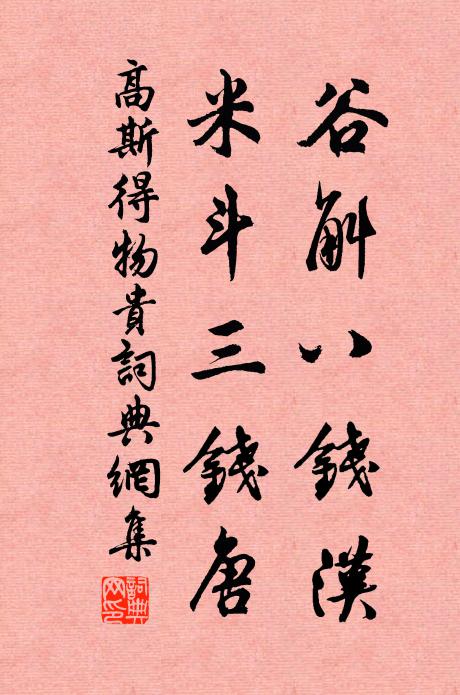 谷斛八錢漢
米斗三錢唐
高斯得物貴詞典網集
詞典网印